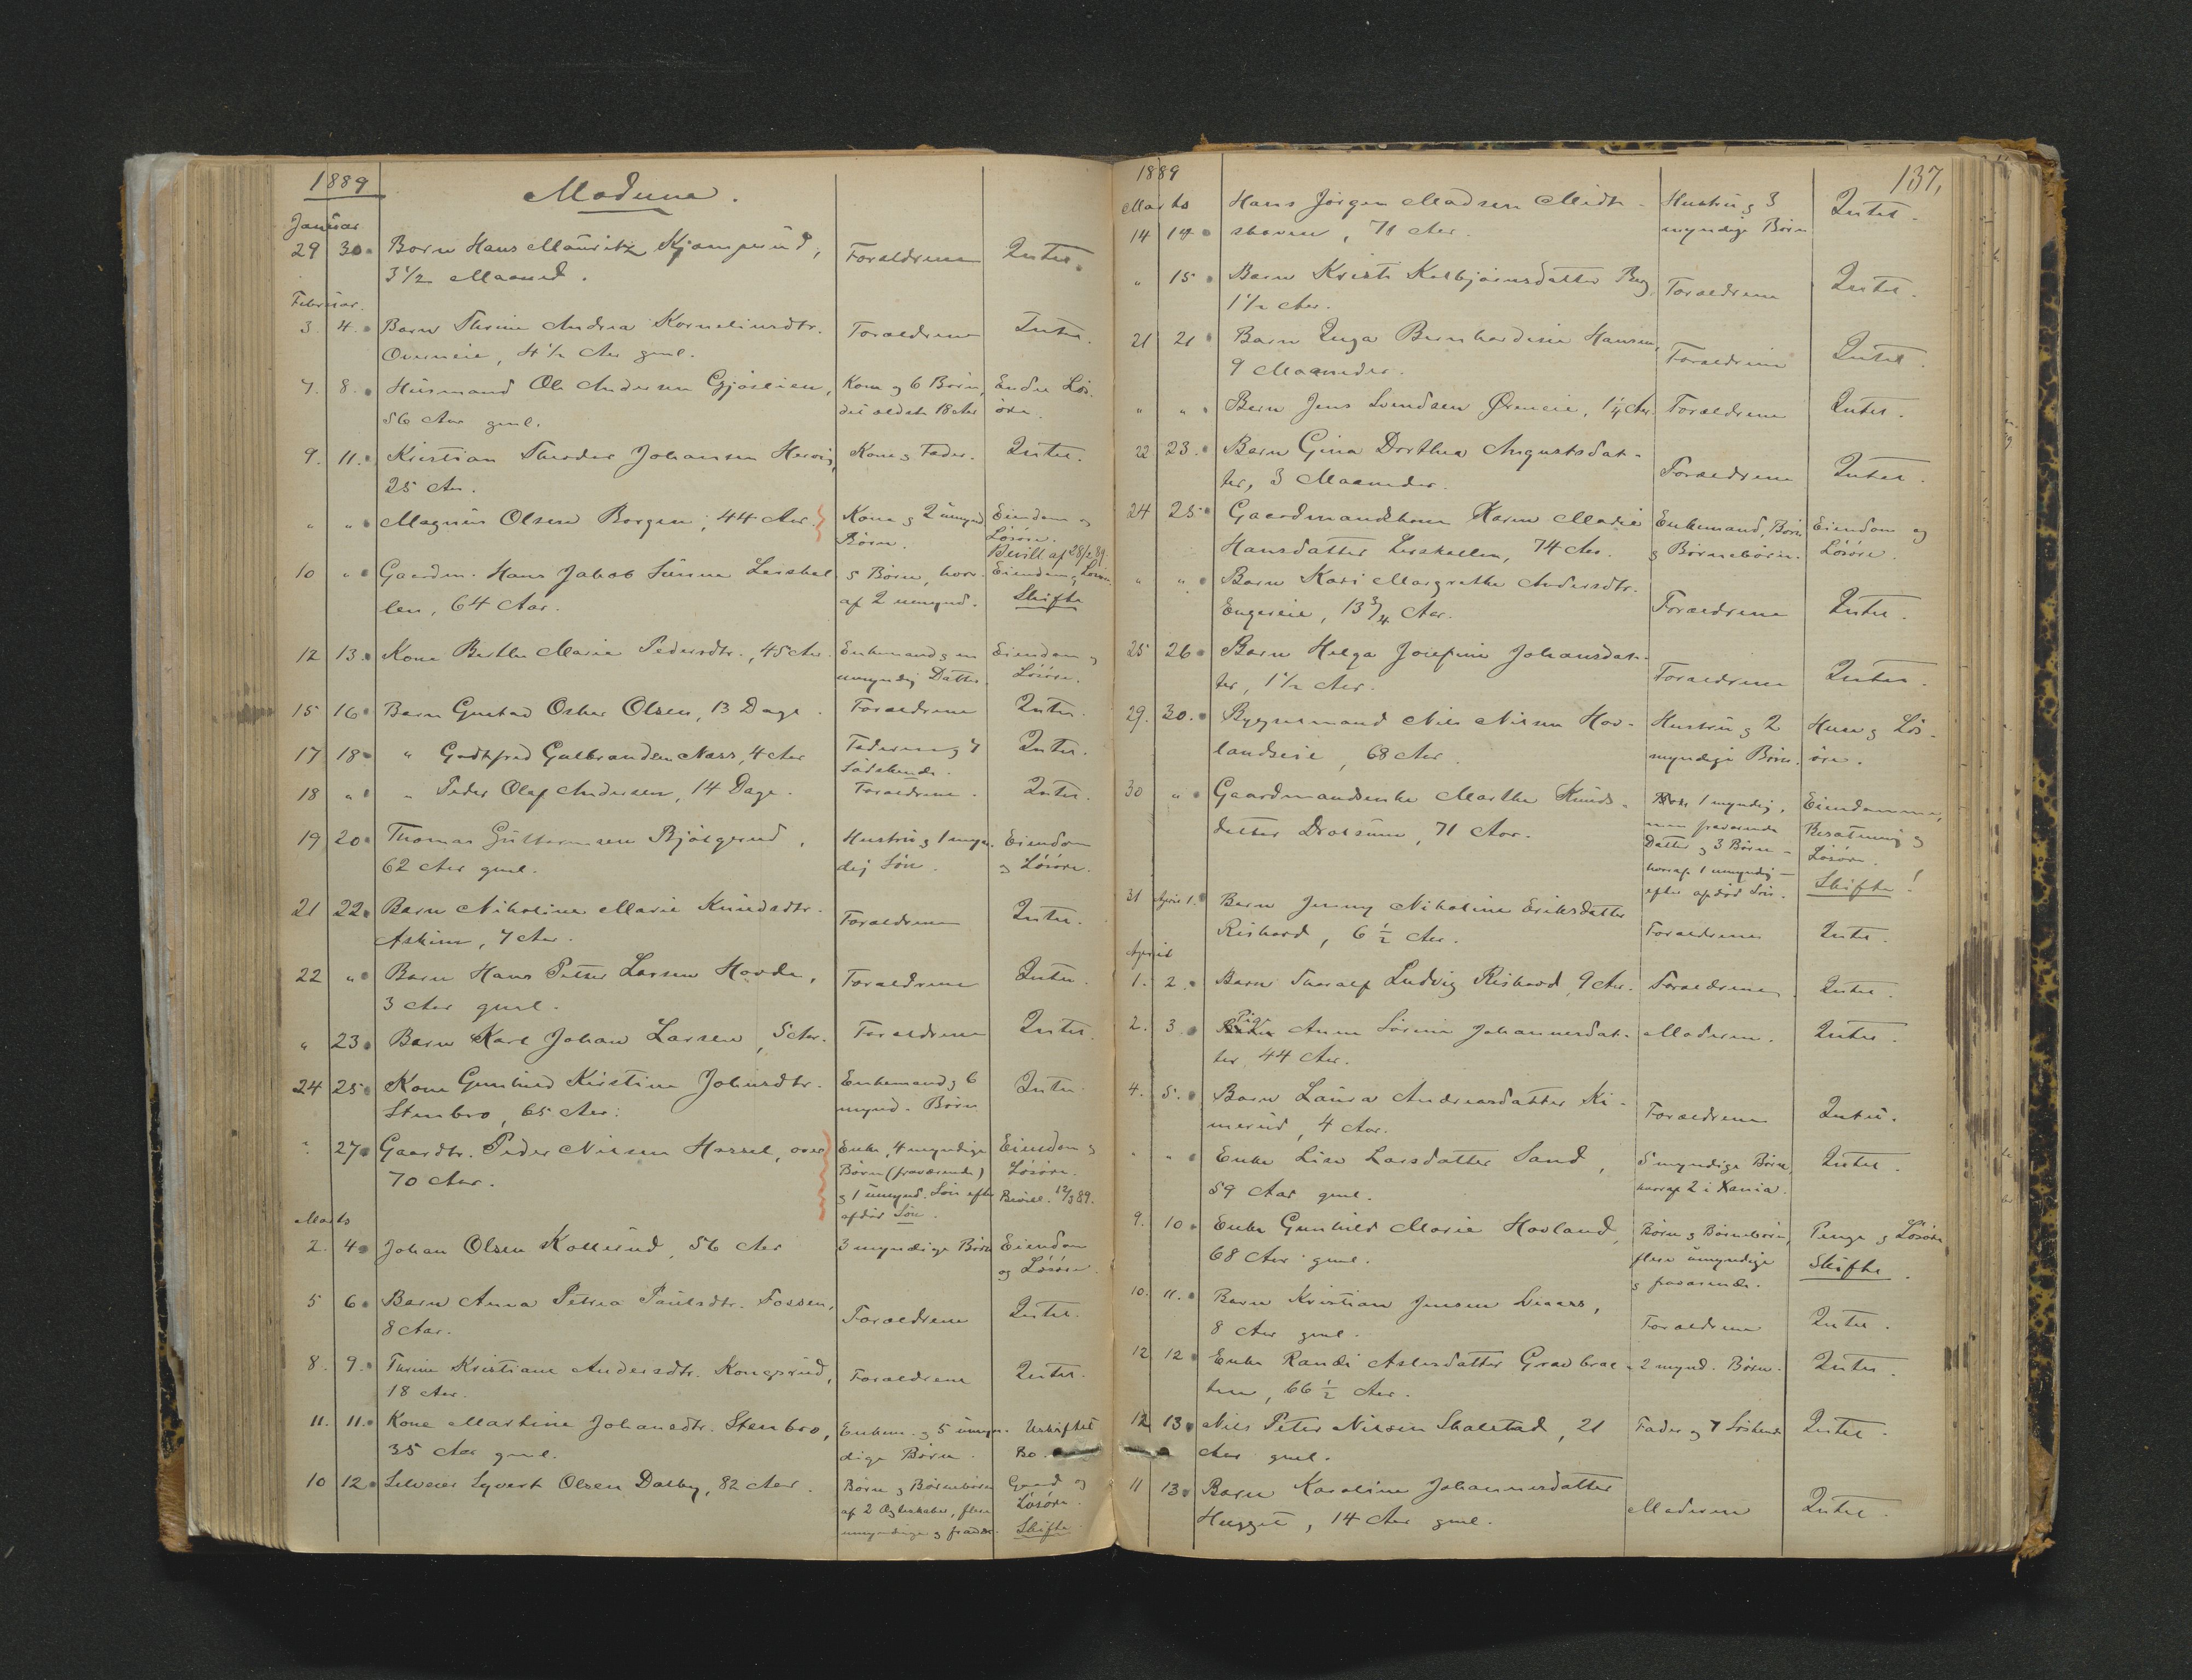 1889
Modum.
Januar
29 30 Barn Hans Mauritz Kjømperud, Forældrene Intet.
3 1/2 Maaned.
Februar.
3. 4. Barn Thrine Andrea Korneliusdtr. Forældrene Intet.
Overneie, 4 1/2 Aar gml.
7. 8. Husmand Ole Andersen Gjøslien, Kone og 6 Børn, Endel Løs-
56 Aar gml. det ældste 18 Aar øre.
9. 11. Kristian Theodor Johansen Kone og Fader. Intet.
25 Aar.
" " Magnus Olsen Borgen, 44 Aar. Kone og 2 umynd. Eiendom og
Børn. Løsøre.
Bevill af 28/2 89.
10 " Gaardm. Hans Jakob Simensen Lerskal- 5 Børn, hvor- Eiendom, Løsøre
len, 64 Aar. af 2 umynd. Skifte
12 13. Kone Berthe Marie Pedersdtr., 45 Aar. Enkemand og en Eiendom og
umyndig Datter. Løsøre.
15 16 Barn Gustav Oskar Olsen, 13 Dage. Forældrene Intet.
17 18 " Godtfred Gulbrandsen Næss, 4 Aar Faderen og 7 Intet.
Sødskende.
18 " " Peder Olaf Andersen, 14 Dage. Forældrene. Intet.
19 20 Thomas Guttormsen Bjølgerud, Hustru og 1 myn- Eiendom
62 Aar gml. dig Søn. og Løsøre.
21 22 Barn Nikoline Marie Knudsdtr. Forældrene Intet.
Askim, 7 Aar.
22 " Barn Hans Petter Larsen Hovde, Forældrene Intet.
3 Aar gml.
" 23 Barn Karl Johan Larsen, 5 Aar. Forældrene Intet.
24 25 Kone Gunhild Kirstine Johnsdtr. Enkemand og 6 Intet.
Stenbro, 65 Aar. mynd. Børn
" 27 Gaardbr. Peder Nilsen Hassel, over Enke, 4 myndige Eiendom og
70 Aar. Børn (fraværende) Løsøre.
og 1 umynd. Søn efter Bevill. 12/3 89.
afdød Søn.
Marts
2. 4 Johan Olsen Kollerud, 56 Aar 3 myndige Børn Eiendom
og Løsøre.
5 6 Barn Anna Petrea Paulsdtr. Fossen, Forældrene Intet.
8 Aar.
8. 9. Thrine Kristiane Andersdtr. Kongsrud, Forældrene Intet.
18 Aar.
11. 11. Kone Martine Johansdtr. Stenbro, Enkem. og 5 umyn- Uskiftet
35 Aar gml. dige Børn. Bo.
10 12 Selveier Syvert Olsen Dalby, 82 Aar. Børn og Børnebørn Gaard og
af 2 Ægteskaber, flere Løsøre.
umyndige og fravær. Skifte.
1889 137.
Marts Hans Jørgen Madsen Midt- Hustru og 3 Intet.
14 14 skoven, 71 Aar. myndige Børn
" 15 Barn Kristi Kolbjørnsdatter Berg, Forældrene Intet.
1 1/2 Aar.
21 21 Barn Inga Bernhardine Hansen, Forældrene Intet.
9 Maaneder.
" " Barn Jens Svendsen Øreneie, 1 1/4 Aar. Forældrene Intet.
22 23. Barn Gina Dorthea Augustsdat- Forældrene Intet.
ter, 3 Maaneder.
24 25 Gaardmandskone Karen Marie Enkemand, Børn Eiendom og
Hansdatter Lerskallen, 74 Aar. og Børnebørn. Løsøre.
" " Barn Kari Margrethe Andersdtr. Forældrene Intet.
Engereie, 13 3/4 Aar.
25 26 Barn Helga Josefine Johansdat- Forældrene Intet.
ter, 1 1/2 Aar.
29. 30. Bygselmand Nils Nilsen Hov- Hustru og 2 Huse og Løs-
landseie, 68 Aar. myndige Børn. øre.
30 " Gaardmandsenke Marthe Knuds- 1 myndig, Eiendomme,
datter Drolsum, 71 Aar. men fraværende Besætning og
Datter og 3 Børn - Løsøre.
hvoraf 1 umyndig - Skifte!
efter afdød Søn.
31 April 1. Barn Jenny Nikoline Eriksdatter
Rishovd, 6 1/2 Aar. Forældrene Intet.
April
1. 2. Barn Thoralf Ludvig Rishovd, 9 Aar. Forældrene. Intet.
2. 3. Pige Anne Sørine Johannesdat- Moderen. Intet.
ter, 44 Aar.
4. 5. Barn Laura Andreasdatter Ki- Forældrene Intet.
merud, 4 Aar.
" " Enke Lise Larsdatter Sand, 5 myndige Børn, Intet.
59 Aar gml. hvoraf 2 i Xania.
9. 10. Enke Gunhild Marie Hovland, Børn og Børnebørn, Penge og Løsøre
68 Aar gml. flere umyndige Skifte.
og fraværende.
10. 11. Barn Kristian Jensen
8 Aar gml. Forældrene Intet.
12 12 Enke Randi Aslesdatter Gravbrae- 2 mynd. Børn. Intet.
ten, 66 1/2 Aar.
12 13 Nils Peter Nilsen Skalstad, 21 Fader og 7 Søskende Intet.
Aar gml.
11 13. Barn Karoline Johannesdatter Moderen Intet.
Hugget, 14 Aar gml.